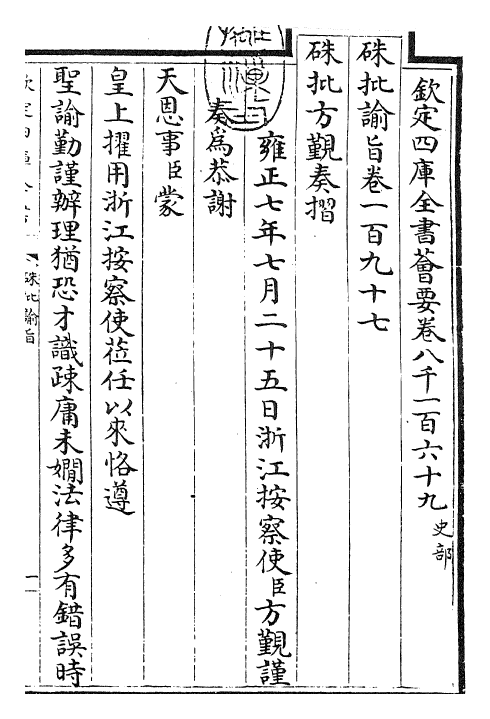 欽定四庫全書薈要卷八千一百六十九 史部
硃批諭旨卷一百九十七
硃批方覲奏摺
雍正七年七月二十五日浙江按察使臣方覲謹
奏為恭謝
天恩事臣蒙
皇上擢用浙江按察使蒞任以來恪遵
聖諭勤謹辦理猶恐才識疎庸未嫺法律多有錯誤時
硃批諭旨
一